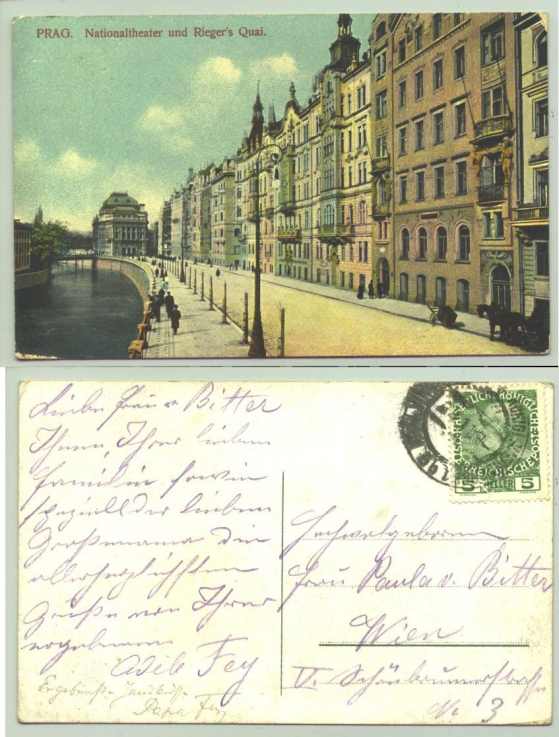 PRAG. Nationaltheater und Rieger's Quai.
Liebe Frau v. Bitter
Ihnen, Ihrer lieben
Familie, sowie
speziell der lieben
Grossmama die
allerherzlichsten
Grüße von Ihrer
ergebenen
Adele Fey
Papa Fey
5 HELLER 5
Hochwolgeboren
Frau Paula v. Bitter
Wien
V. Schönbrunnerstrasse
Nr 3